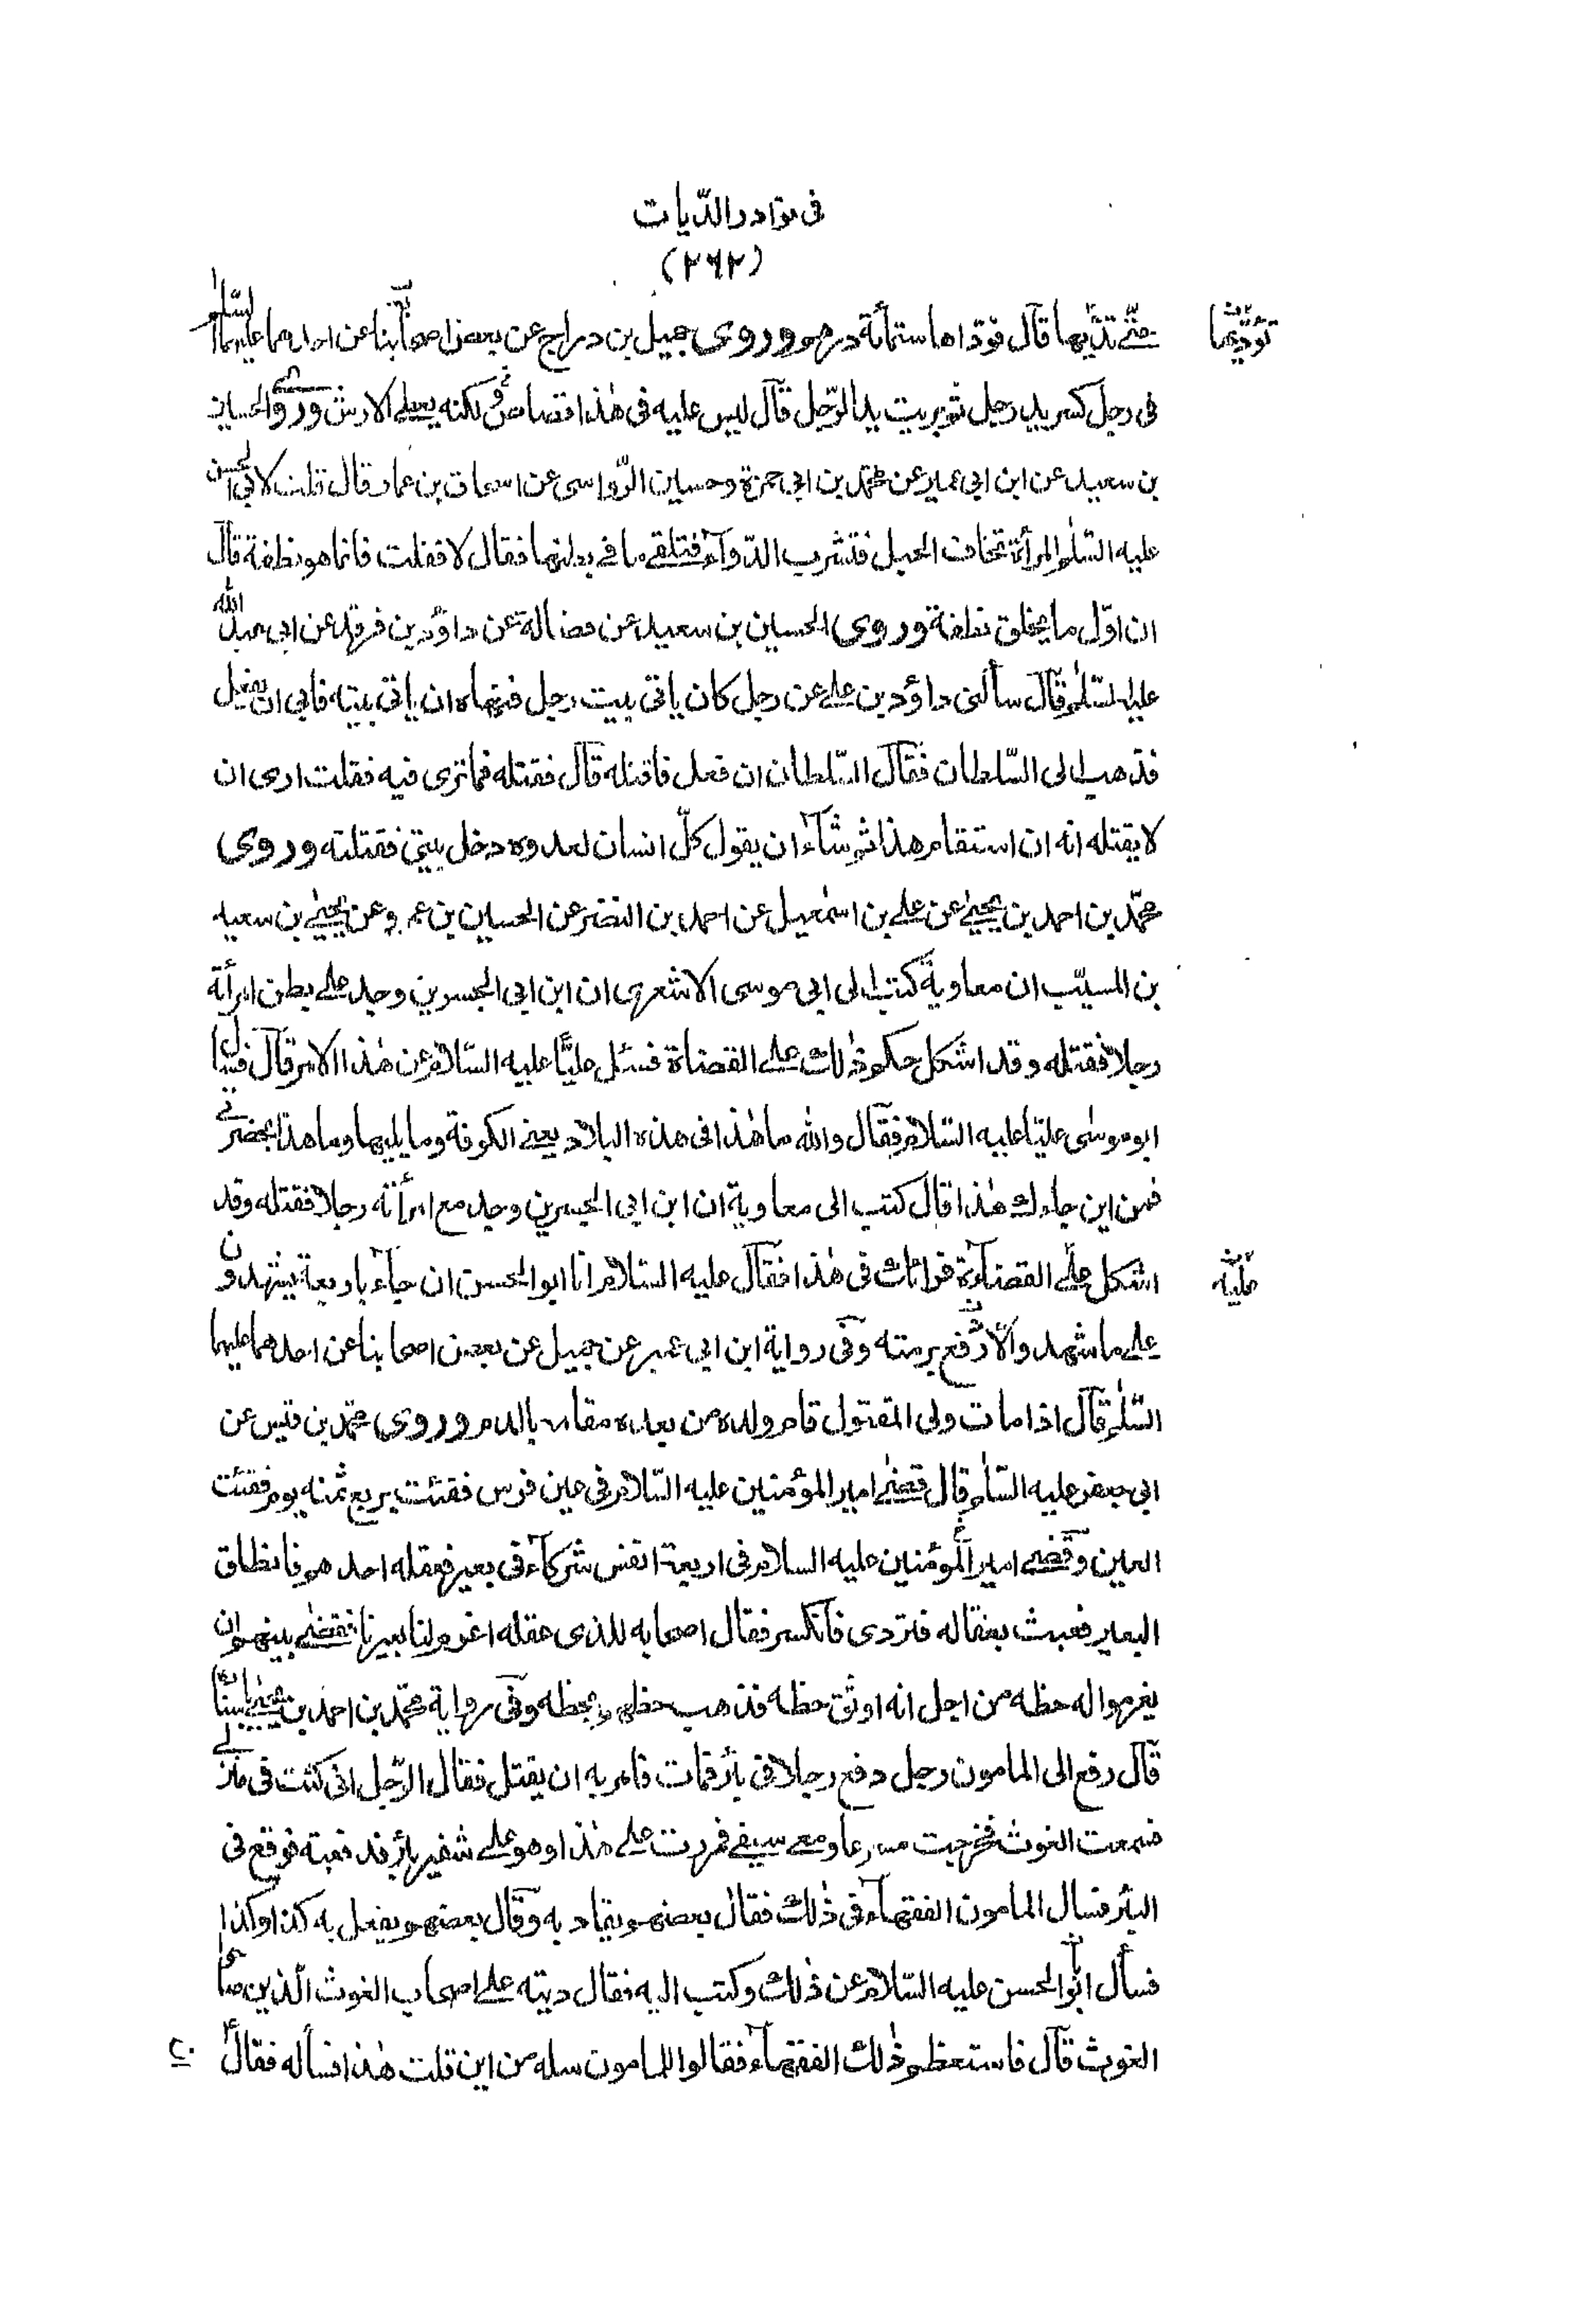 فى نوادر الدّيات
(٢٦٢)
حتّى تدّيها قال فوّداها ستمائة درهم وروى جميل بن دراج عن بعض اصحابنا عن احدهما عليهما السّلم
تؤدّيها
فى رجل كسر يد رجل ثم بريت يد الرّجل قال ليس عليه فى هٰذا قصاص و لكنه يعطى الارش وروى الحسين
بن سعيد عن ابن ابى عمير عن محمّد بن ابى حمزة وحسين الرّواسى عن اسحاق بن عمار قال قلت لابى الحسن
عليه السّلم المرأة تخاف الحبل فتشرب الدّوآء فتلقى ما فى بطنها فقال لا فقلت فانما هو نطفة قال
ان اوّل ما يخلق نطفة وروى الحسين بن سعيد عن فضالة عن داؤد بن فرقد عن ابى عبد الله
عليه السّلم قال سألنى داؤد بن على عن رجل كان ياتى بيت رجل فنهاه ان ياتى بيته فابى ان يفعل
فذهب الى السّلطان فقال السّلطان ان فعل فاقتله قال فقتله فما ترى فيه فقلت ارى ان
لا يقتله انه ان استقام هذا ثم شآء ان يقول كلّ انسان لعدوه دخل بيتى فقتلته وروى
محمّد بن احمد بن يحيى عن على بن اسمٰعيل عن احمد بن النضر عن الحسين بن عمرو عن يحيى بن سعيد
بن المسيّب ان معاوية كتب الى ابى موسى الاشعرى ان ابن ابى الجسرين وجد على بطن امرأة
رجلا فقتله وقد اشكل حكم ذٰلك على القضاة فسئل عليّا عليه السّلام عن هٰذا الامر قال فسأل
ابو موسٰى عليّا عليه السّلام فقال والله ما هٰذا فى هذه البلاد يعنى الكوفة وما يليها وما هذا بحضرتى
فمن اين جاءك هٰذا قال كتب الى معاوية ان ابن ابى الجسرين وجد مع امرأته رجلا فقتله وقد
اشكل على القضآءة فرائك فى هٰذا فقال عليه السّلام انا ابو الحسن ان جآء باربعة يشهدون
عليه
على ما شهد والّا دفع برمته وفى رواية ابن ابى عمير عن جميل عن بعض اصحابنا عن احدهما عليهما
السّلم قال اذا مات ولى المقتول قام ولده من بعده مقامه بالدم وروى محمّد بن قيس عن
ابى جعفر عليه السّلم قال قضى امير المؤمنين عليه السّلام فى عين فرس فقئت بربع ثمنه يوم فقئت
العين وقضى امير المؤمنين عليه السلام فى اربعة انفس شركآء فى بعير فعقله احدهم فانطلق
البعير فعبث بعقاله فتردى فانكسر فقال اصحابه للذى عقله اغرم لنا بعيرنا فقضى بينهم ان
يغرموا له حظه من اجل انه اوثق حظه فذهب حظهم بحظه وفى رواية محمّد بن احمد بن يحيى باسناده
قال رفع الى المامون رجل دفع رجلا فى بئر فمات فامر به ان يقتل فقال الرّجل انى كنت فى منزلى
فسمعت الغوث فخرجت مسرعا ومعى سيفى فمررت على هٰذا وهو على شفير بئر فدفعته فوقع فى
البئر فسال المامون الفقهآء فى ذٰلك فقال بعضهم يقاد به وقال بعضهم يفعل به كذا وكذا
فسأل ابو الحسن عليه السّلام عن ذٰلك وكتب اليه فقال ديته على اصحاب الغوث الّذين صاحوا
الغوث قال فاستعظم ذٰلك الفقهآء فقالوا للمامون سله من اين قلت هٰذا فسأله فقال